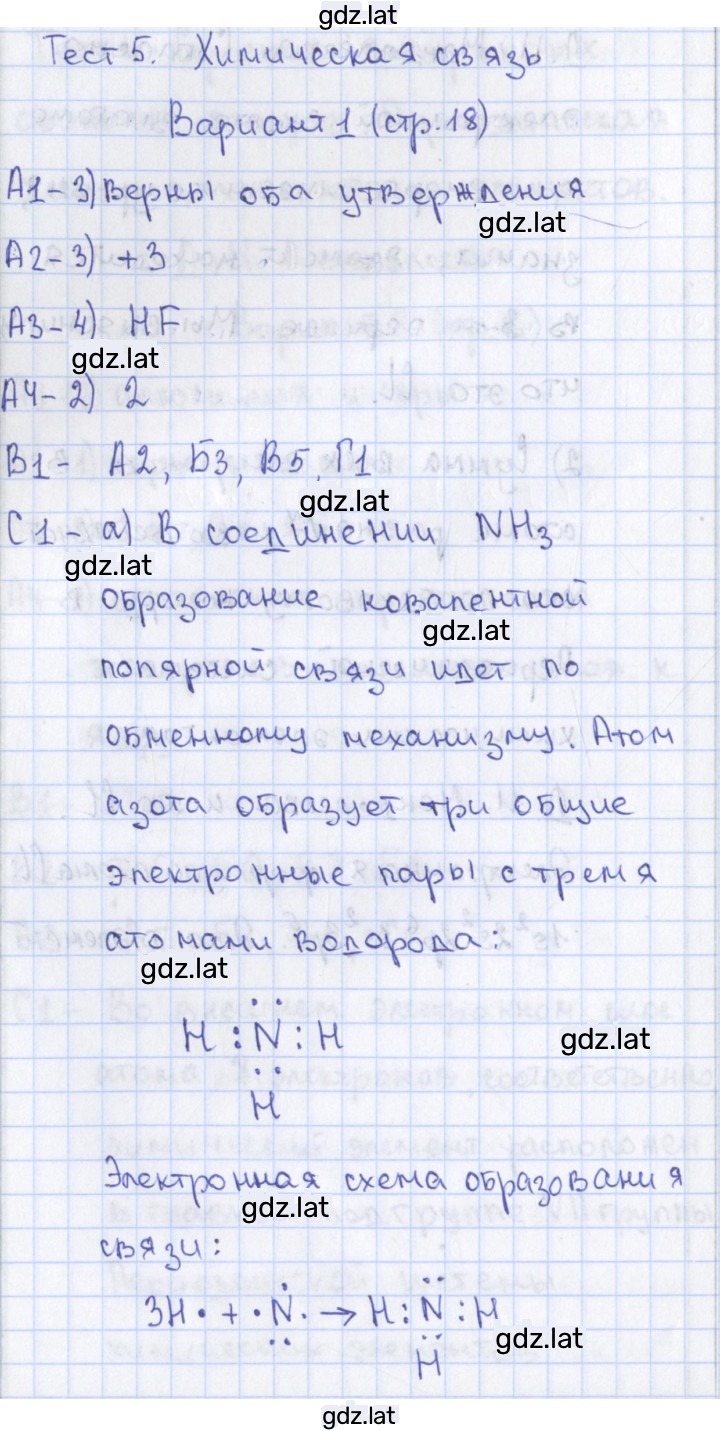 gdz.lat
Тест 5. Химическая связь
Вариант 1 (стр. 18)
А1-3) Верны оба утверждения
gdz.lat
А2-3) +3
А3-4) HF
gdz.lat
А4-2) 2
В1- А2, Б3, В5, Г1
gdz.lat
С1- а) В соединении NH3
gdz.lat
образование ковалентной
gdz.lat
полярной связи идет по
обменному механизму. Атом
азота образует три общие
электронные пары с тремя
атомами водорода:
gdz.lat
H : N : H
gdz.lat
H
Электронная схема образования
gdz.lat
связи:
3H· + ·N· → H : N : H
gdz.lat
H
gdz.lat